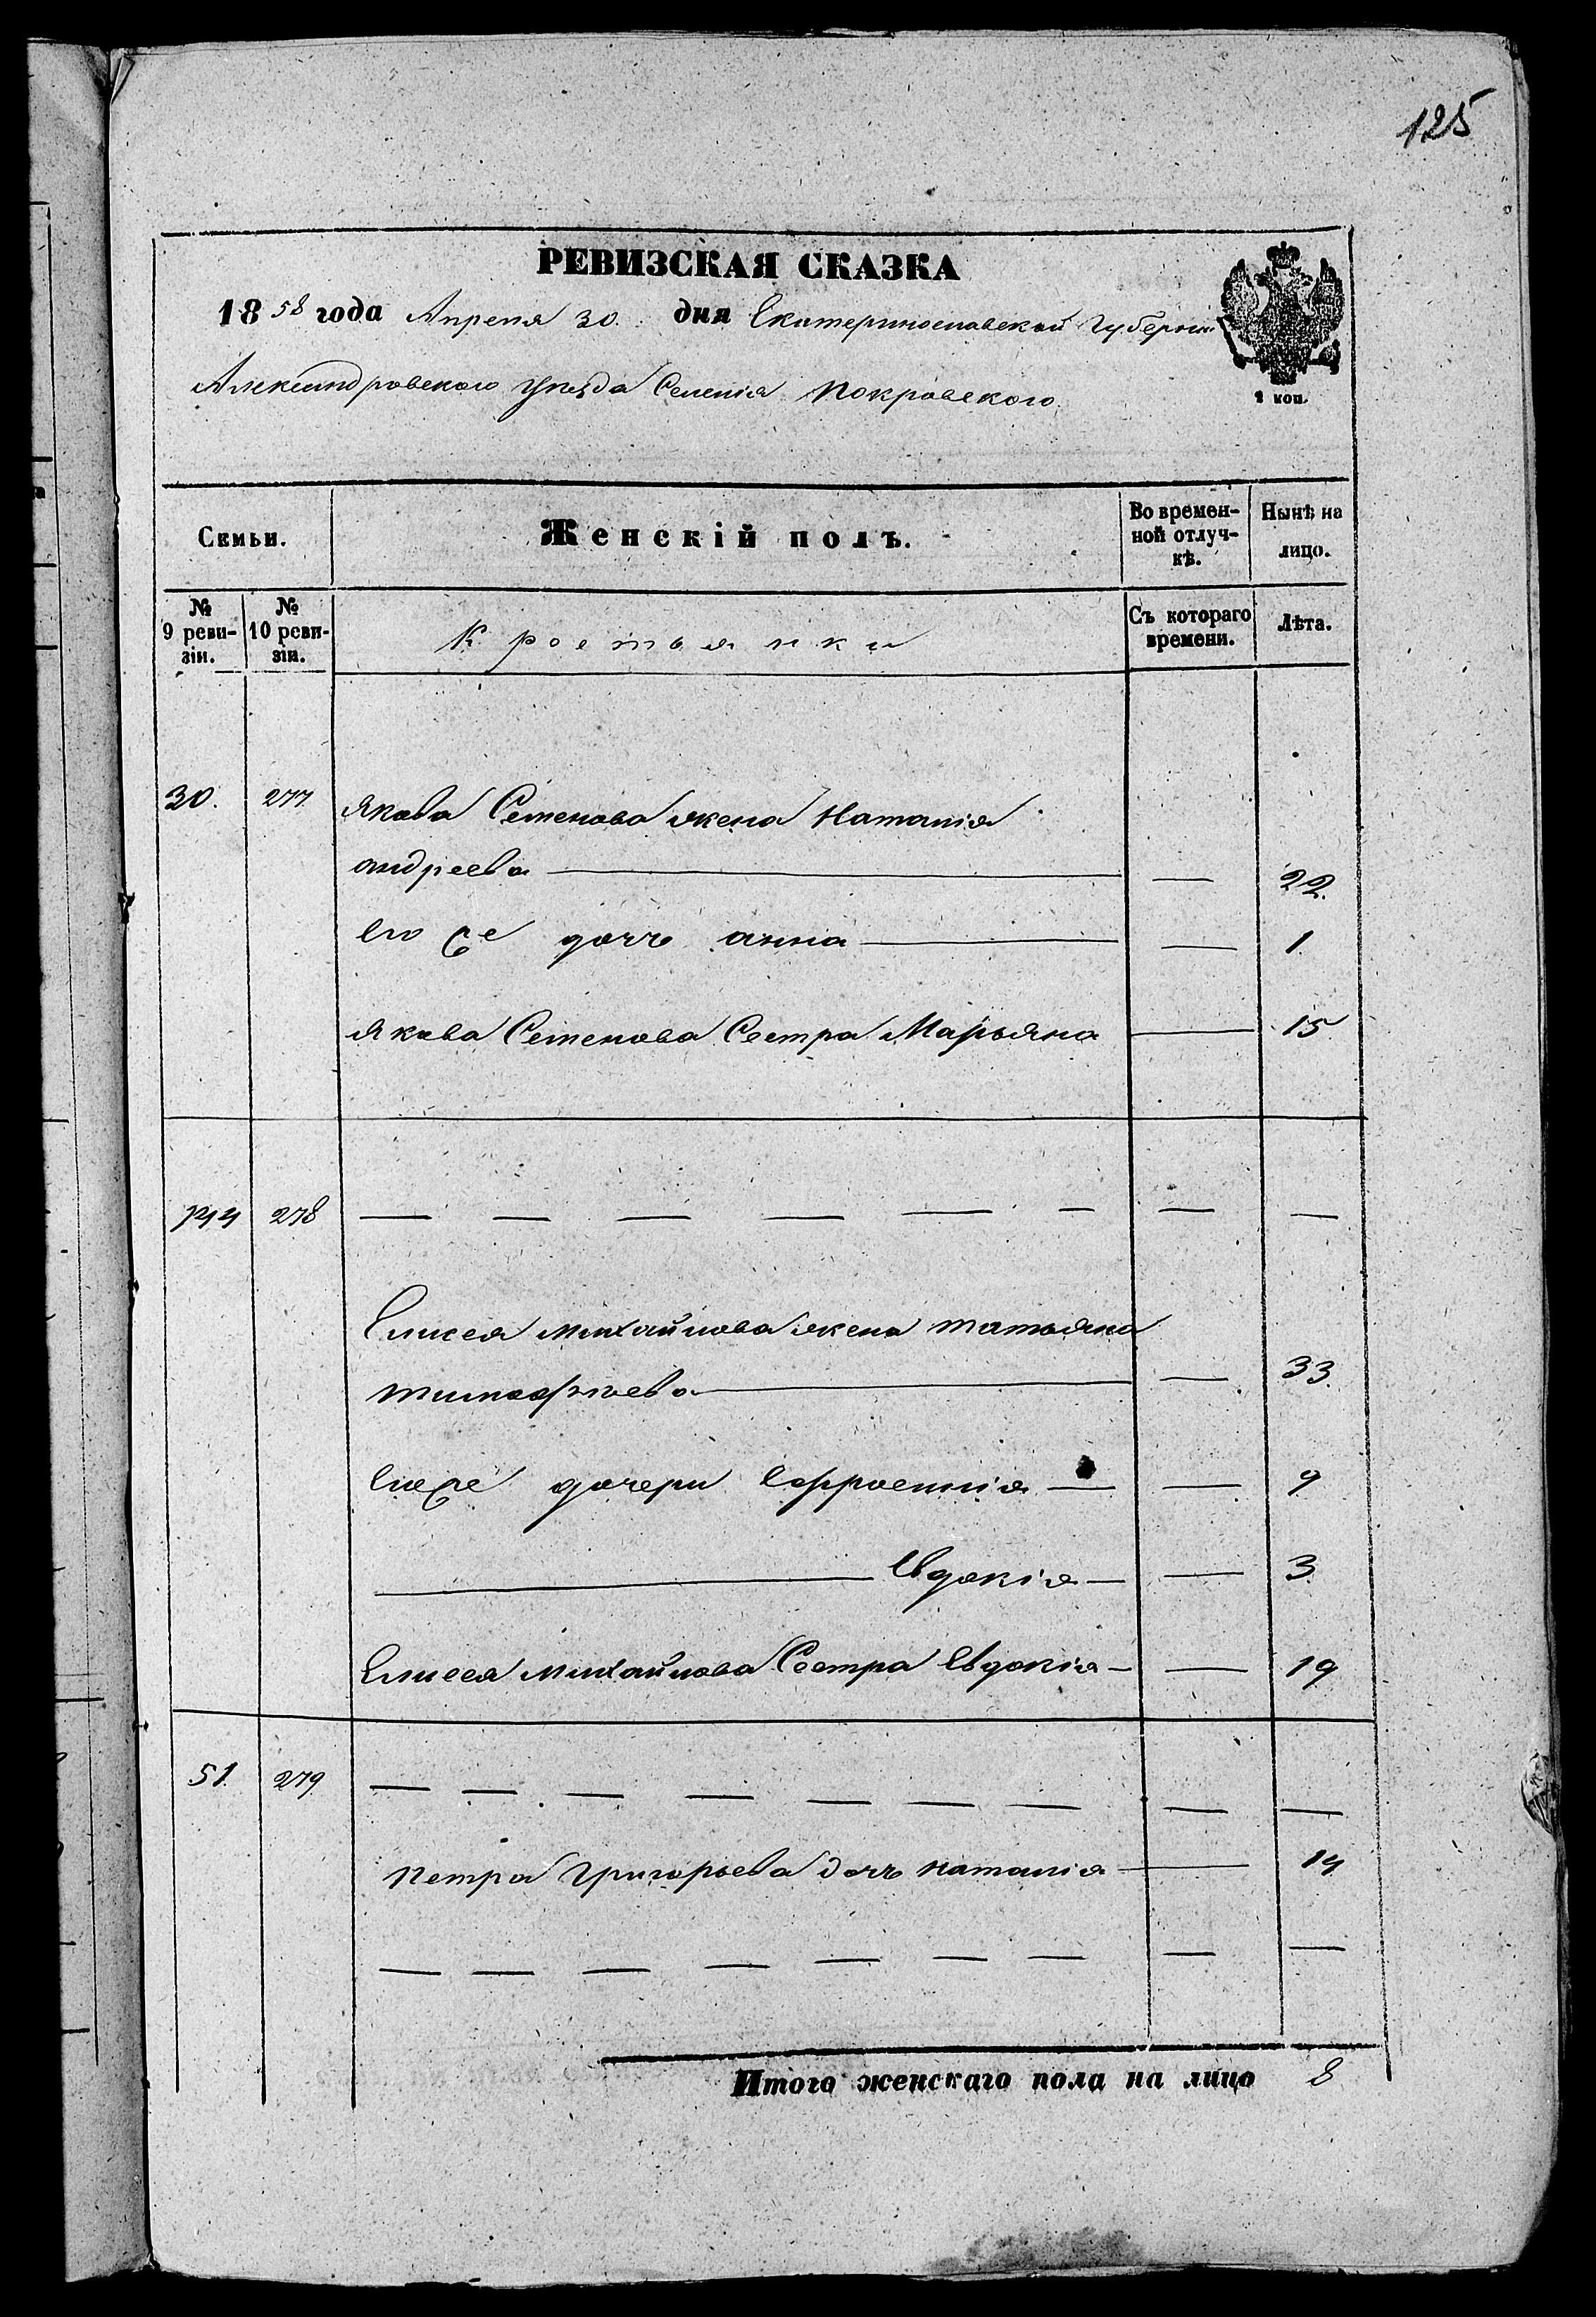 125
РЕВИЗСКАЯ СКАЗКА
1858 года Апреля 30. дня Екатеринославской Губернии
Александровского Уезда Селенія Покровского
2 коп.
Семьи. Женскій полъ. Во времен-ной отлуч-кѣ. Нынѣ на лицо.
№ 9 реви-зіи. № 10 реви-зіи. Крестьянки Съ котораго времени. Лѣта.
30. 277. Якова Семенова жена Наталія
андреева — 22.
Его же дочь анна — 1.
Якова Семенова Сестра Марьяна — 15
278 — — — — — — — —
Елисея Михайлова жена татьяна
тимофеева — 33.
Его же дочери Ефросинія — 9
— Евдокія — 3
Елисея Михайлова Сестра Евдокія — 19
51. 279 — — — — — — — — —
Петра Григорьева дочь наталія — 14
— — — — — — — — —
Итого женскаго пола на лицо 8